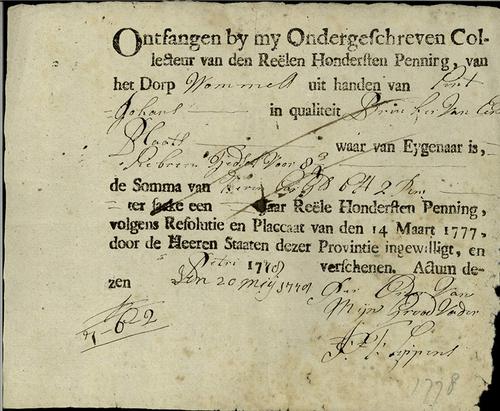 Ontfangen by my Ondergeschreven Col-
lecteur van den Reëlen Hondersten Penning, van
het Dorp Wommels uit handen van
Johans in qualiteit
Plaats waar van Eygenaar is,
voor
de Somma van 6 st 2
ter sake een Jaar Reële Hondersten Penning,
volgens Resolutie en Placcaat van den 14 Maart 1777,
door de Heeren Staaten dezer Provintie ingewilligt, en
Petri 1778 verschenen. Actum de-
zen den 20 Meij 1778
Per Order van
Mijn Groot Vader
7-6-2
1778